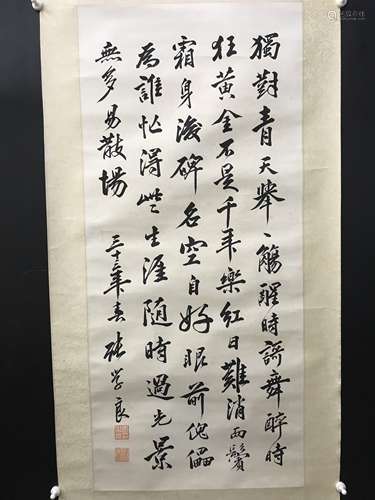 獨對青天舉一觴醒時謌舞醉時
狂黃金不是千年樂紅日難消兩鬢
霜身後碑名空自好眼前傀儡
為誰忙得些生涯隨時過光景
無多易散場 三十年春 張学良